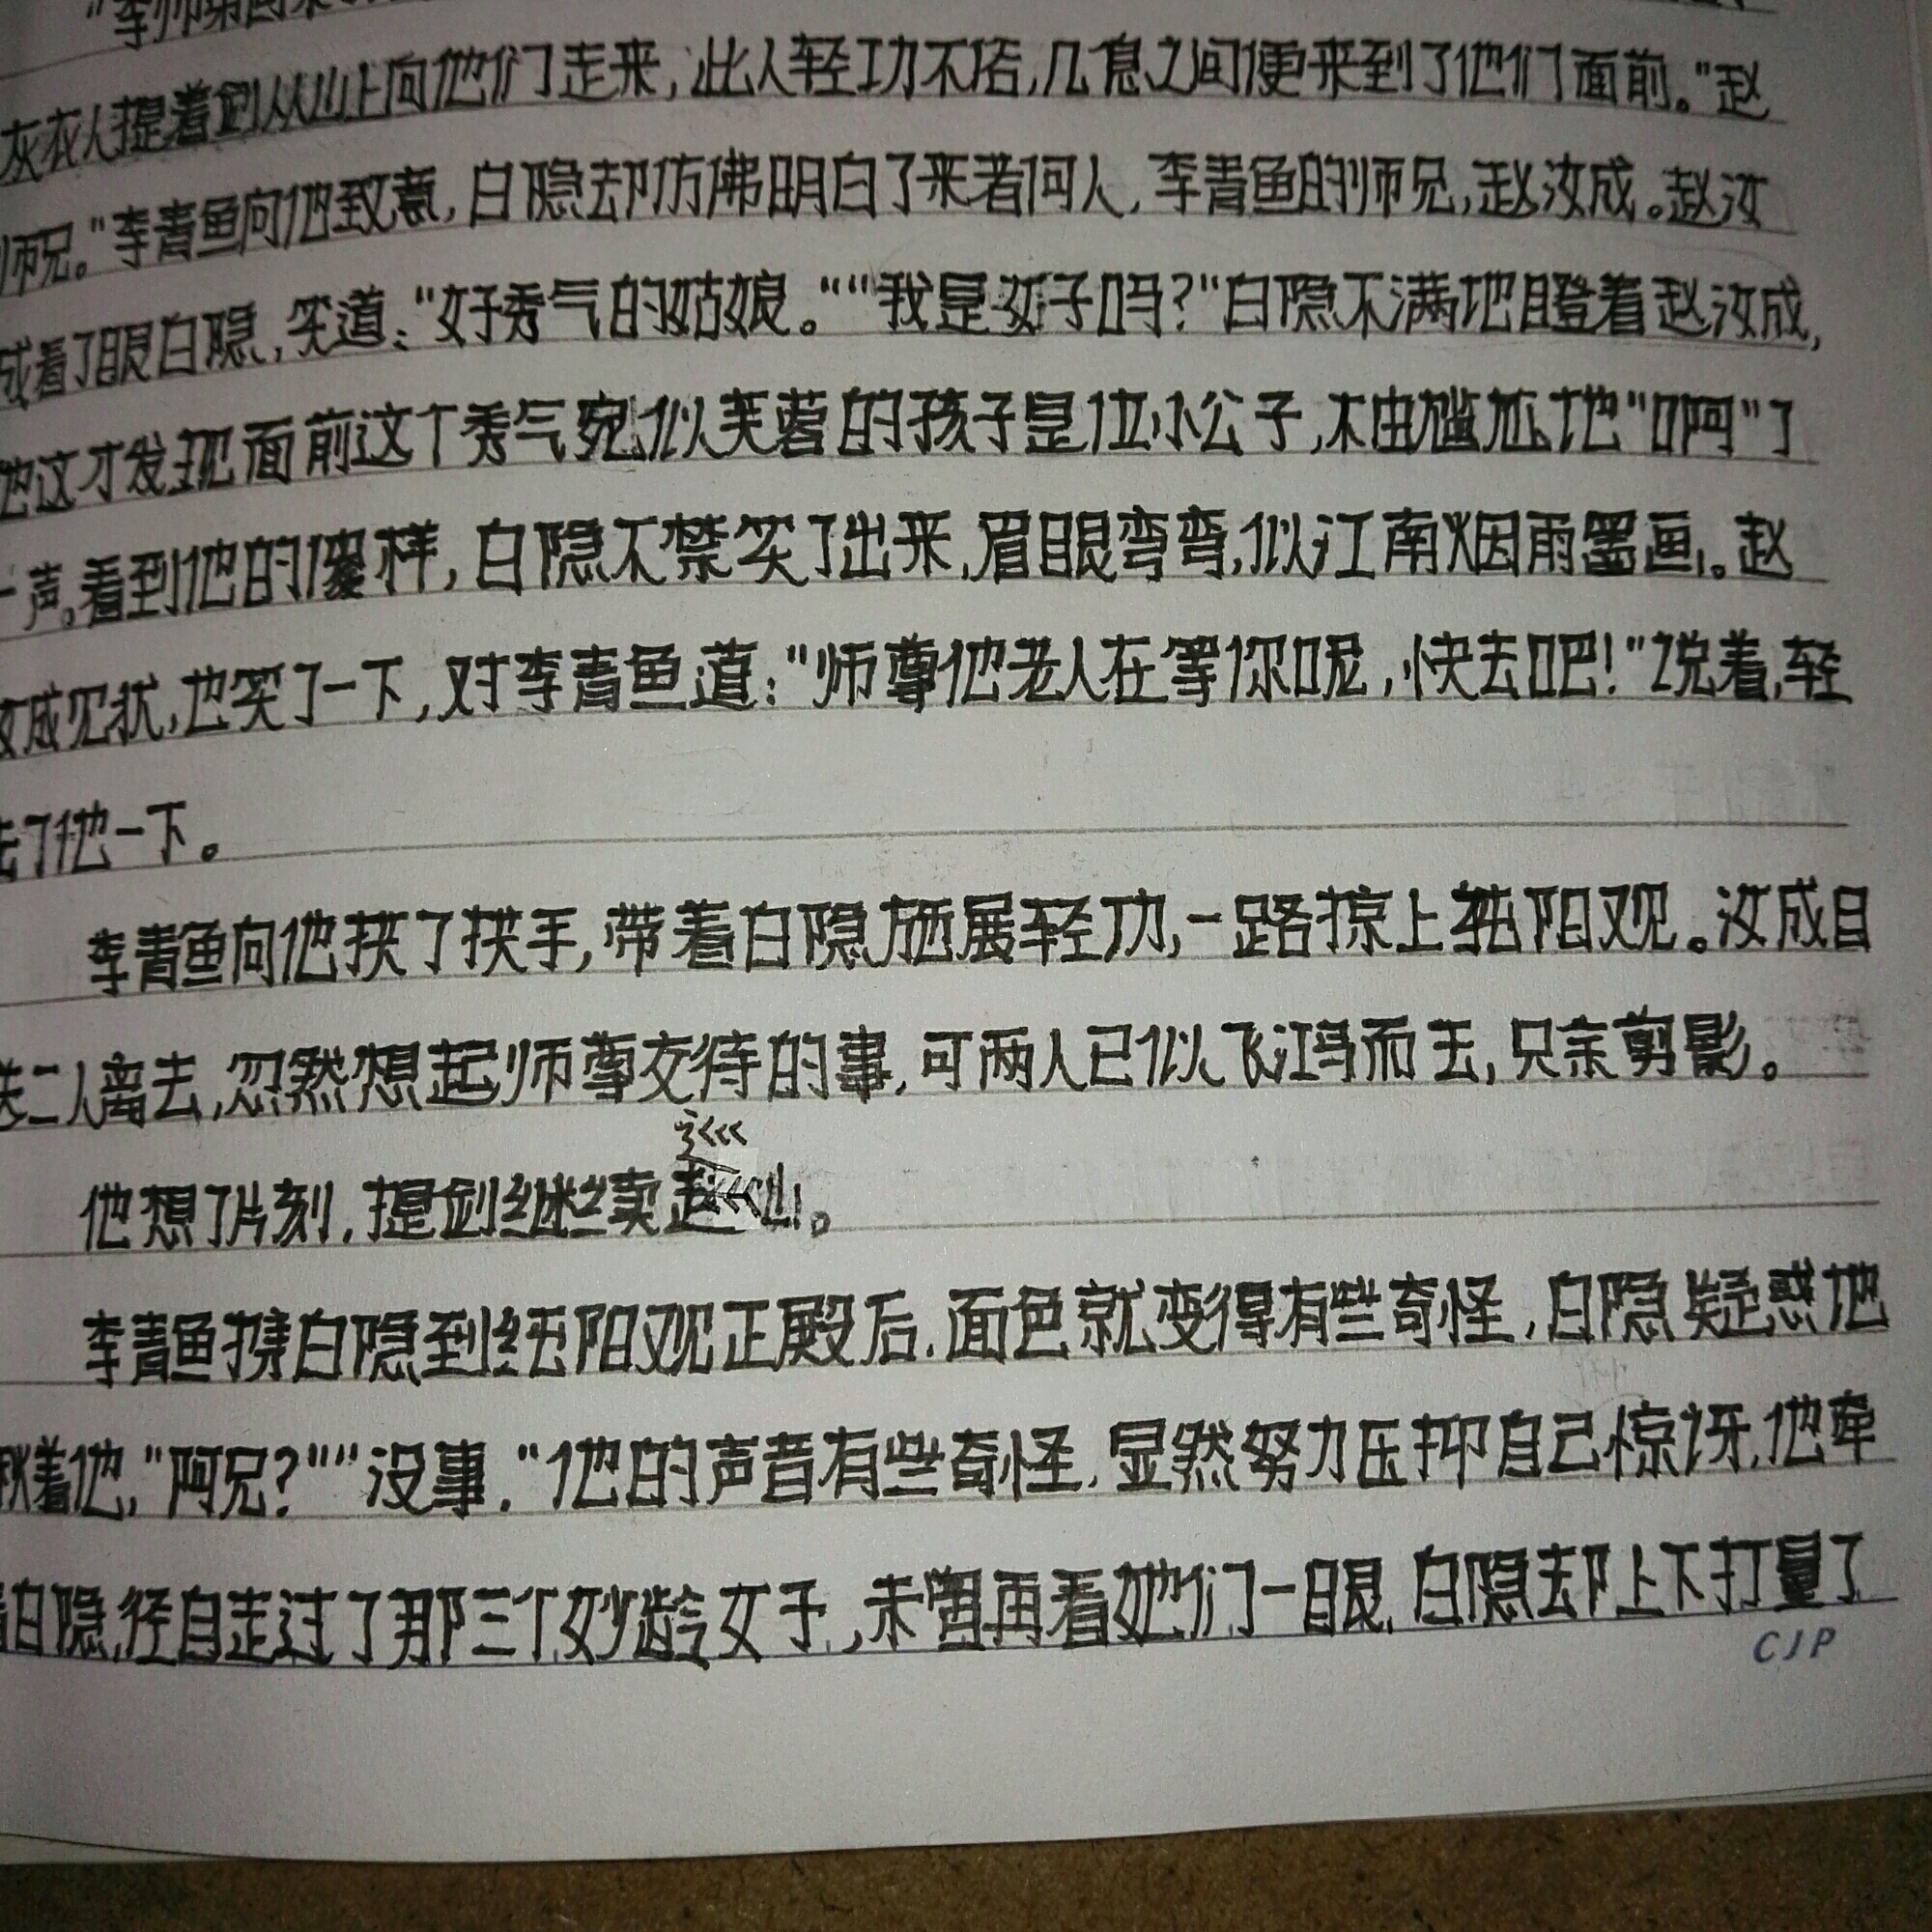 "李师弟回来
灰衣人提着剑从山上向他们走来,此人轻功不俗,几息之间便来到了他们面前。"赵
师兄。"李青鱼向他致意,白隐却仿佛明白了来者何人,李青鱼的师兄,赵汝成。赵汝
成看了眼白隐,笑道:"好秀气的姑娘。""我是女子吗?"白隐不满地瞪着赵汝成,
他这才发现面前这个秀气宛似芙蓉的孩子是位小公子,不由尴尬地"啊"了
一声。看到他的傻样,白隐不禁笑了出来,眉眼弯弯,似江南烟雨墨画。赵
汝成见状,也笑了一下,对李青鱼道:"师尊他老人在等你呢,快去吧!"说着,轻
了他一下。
李青鱼向他扶了扶手,带着白隐施展轻功,一路掠上纯阳观。汝成目
送二人离去,忽然想起师尊交待的事,可两人已似飞鸿而去,只余剪影。
他想了片刻,提剑继续巡山。
李青鱼携白隐到纯阳观正殿后,面色就变得有些奇怪,白隐疑惑地
瞅着他,"阿兄?""没事,"他的声音有些奇怪,显然努力压抑自己惊讶,他牵
着白隐,径自走过了那三个妙龄女子,未曾再看她们一眼,白隐却上下打量了
CJP